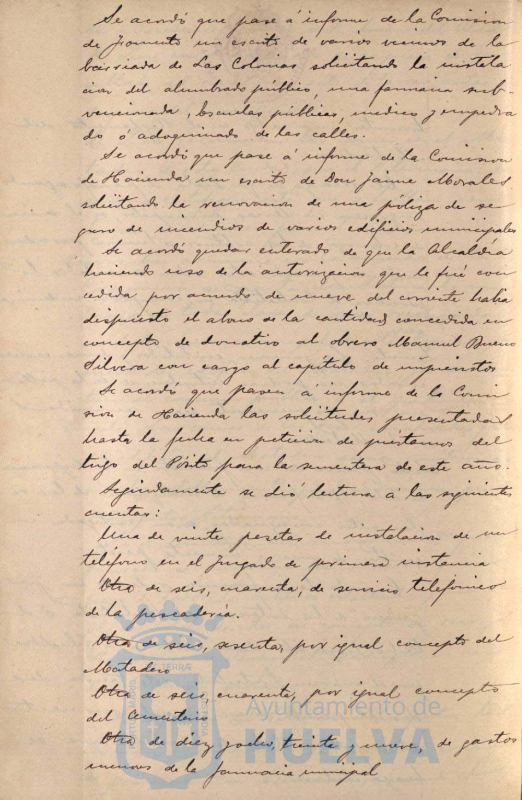 Se acordó que pase á informe de la Comision
de Fomento un escrito de varios vecinos de la
barriada de Las Colonias solicitando la instala
cion del alumbrado público, una farmacia sub-
vencionada, Escuelas públicas, medico y empedra
do ó adoquinado de las calles.
Se acordó que pase á informe de la Comision
de Hacienda un escrito de Don Jaime Morales
solicitando la renovacion de una póliza de se
guro de incendios de varios edificios municipales
Se acordó quedar enterado de que la Alcaldía
haciendo uso de la autorizacion que le fué con
cedida por acuerdo de nueve del corriente habia
dispuesto el abono de la cantidad concedida en
concepto de donativo al obrero Manuel Bueno
Silvera con cargo al capitulo de imprevistos
Se acordó que pasen á informe de la Comi
sion de Hacienda las solicitudes presentadas
hasta la fecha en peticion de préstamos del
trigo del Pósito para la sementera de este año.
Seguidamente se dió lectura á las siguientes
cuentas:
Una de veinte pesetas de instalacion de un
teléfono en el Juzgado de primera instancia
Otra de seis, cuarenta, de servicio telefonico
de la pescadería.
Otra de seis, sesenta, por igual concepto del
Matadero
Otra de seis, cuarenta, por igual concepto
del Cementerio
Otra de diez y ocho, treinta y nueve, de gastos
menores de la farmacia municipal
Ayuntamiento de
HUELVA